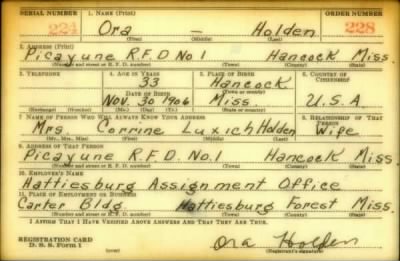 SERIAL NUMBER 1. NAME (Print) ORDER NUMBER
224 Ora - Holden 228
(First) (Middle) (Last)
2. ADDRESS (Print)
Picayune R.F.D No 1 Hancock Miss
(Number and street or R. F. D. number) (Town) (County) (State)
3. TELEPHONE 4. AGE IN YEARS 5. PLACE OF BIRTH 6. COUNTRY OF CITIZENSHIP
33 Hancock
(Town or county)
DATE OF BIRTH
Nov. 30 1906 Miss. U.S.A
(Exchange) (Number) (Mo.) (Day) (Yr.) (State or country)
7. NAME OF PERSON WHO WILL ALWAYS KNOW YOUR ADDRESS 8. RELATIONSHIP OF THAT PERSON
Mrs. Corrine Luxich Holden Wife
(Mr., Mrs., Miss) (First) (Middle) (Last)
9. ADDRESS OF THAT PERSON
Picayune R.F.D. No.1 Hancock Miss
(Number and street or R. F. D. number) (Town) (County) (State)
10. EMPLOYER'S NAME
Hattiesburg Assignment Office
11. PLACE OF EMPLOYMENT OR BUSINESS
Carter Bldg Hattiesburg Forest Miss.
(Number and street or R. F. D. number) (Town) (County) (State)
I AFFIRM THAT I HAVE VERIFIED ABOVE ANSWERS AND THAT THEY ARE TRUE.
REGISTRATION CARD
D. S. S. Form 1 Ora Holden
(Registrant's signature)